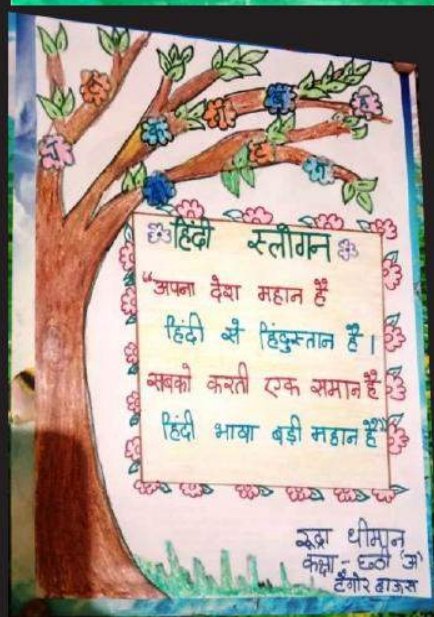 हिंदी स्लोगन
“अपना देश महान है
हिंदी से हिंदुस्तान है।
सबको करती एक समान है
हिंदी भाषा बड़ी महान है”
रूद्रा धीमान
कक्षा - छठी 'अ'
टैगोर हाऊस